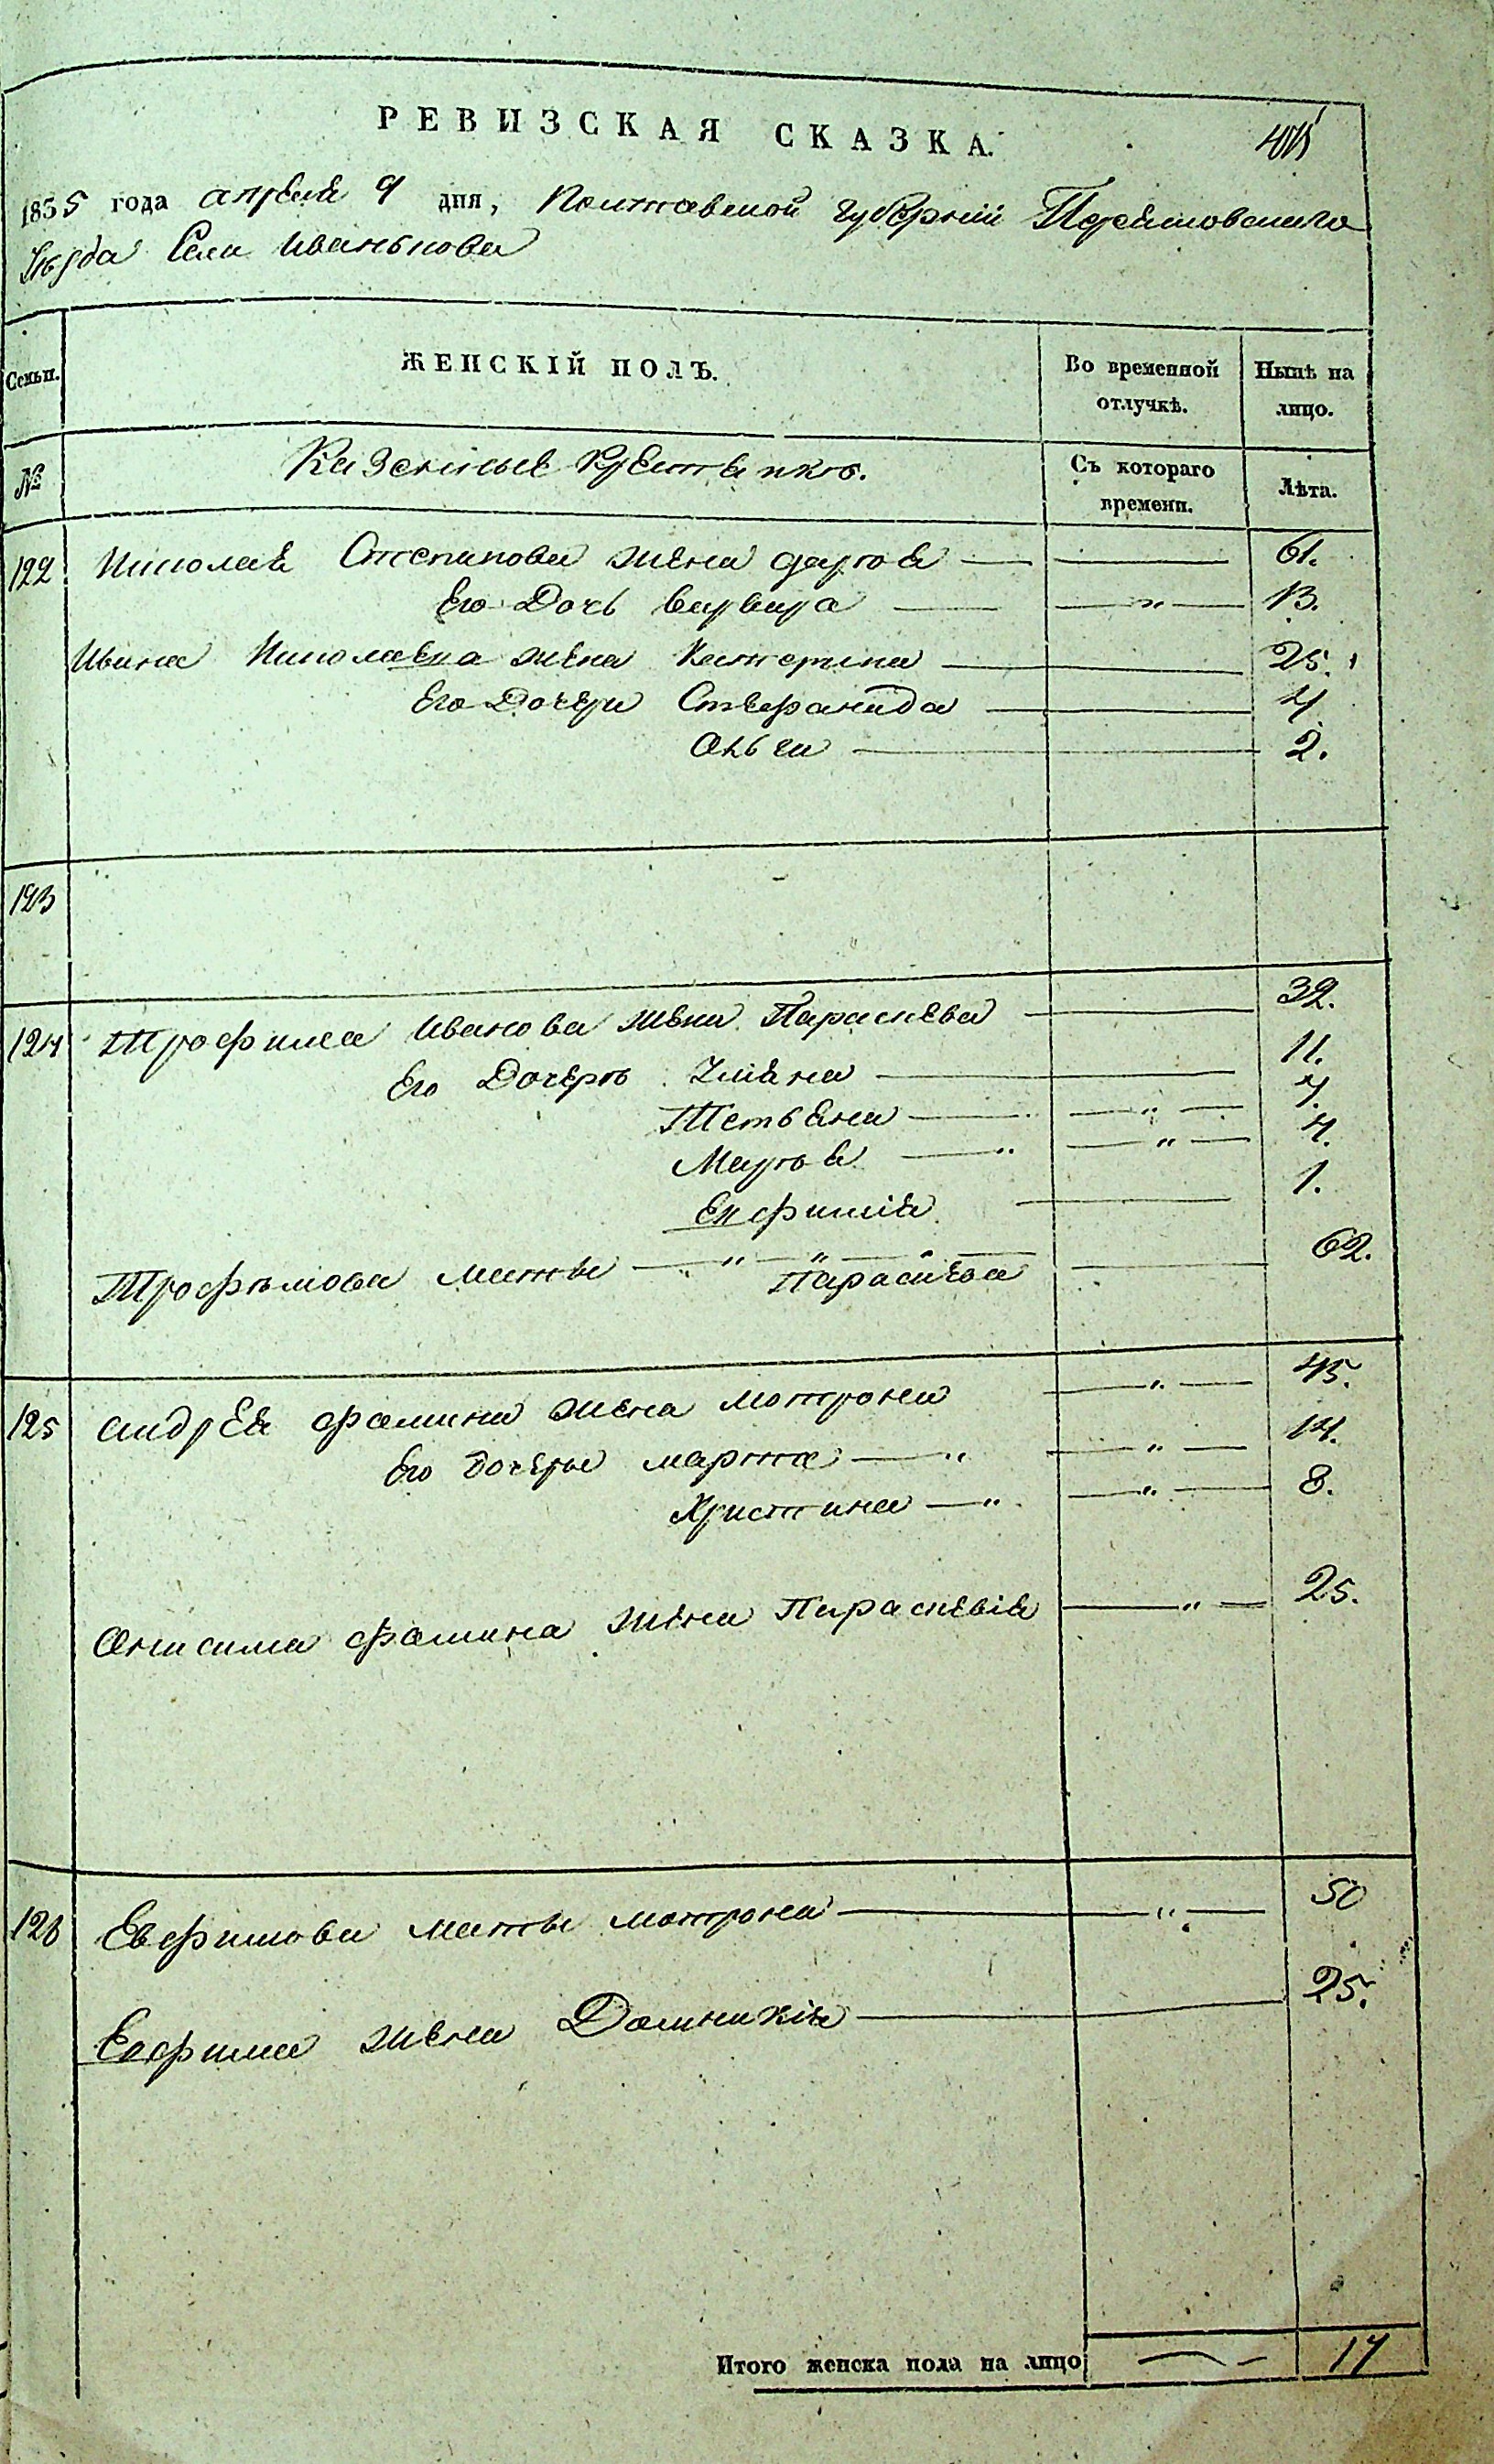 РЕВИЗСКАЯ СКАЗКА.
1835 года апреля 9 дня, Полтавской губерніи
Уѣзда Села Иванькова
Семьи. ЖЕНСКІЙ ПОЛЪ. Во временной отлучкѣ. Нынѣ на лицо.
№ Казенные Съ котораго времени. Лѣта.
122 Николая Степанова жена дарья 61.
Его Дочь варвара " 13.
Ивана Николаева жена Катерина 25.
Его Дочери Стефанида 4
Ольга 2.
123
124 Трофима Иванова жена Параскева 32.
Его Дочерѣ Уліяна 11.
Тетьяна " 7.
Марья " " 4.
Евфимія 1.
Трофимова мать " " Параскева 62.
125 андрея фомина жена мотрона " 45.
Его дочеры марта " " 14.
Христина " " 8.
Онисима фомина жена Параскевія " 25.
126 Евфимова мать мотрона " 50
Евфима жена Домникія 25.
Итого женска пола на лицо 17